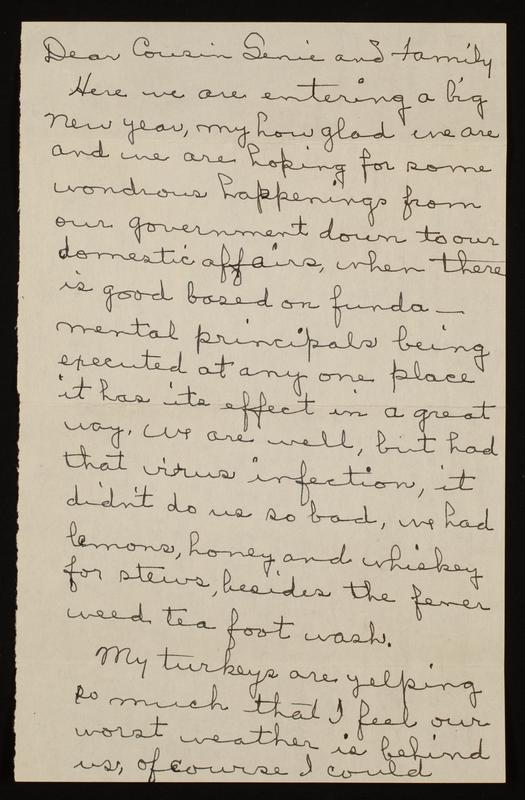 Dear Cousin Genie and Family
Here we are entering a big
New year, my how glad we are
and we are hoping for some
wondrous happenings from
our government down to our
domestic affairs, when there
is good based on funda-
mental principals being
executed at any one place
it has its effect in a great
way. We are well, but had
that virus infection, it
didn't do us so bad, we had
lemons, honey and whiskey
for stews, besides the fever
weed tea foot wash.
My turkeys are yelping
so much that I feel our
worst weather is behind
us, of course I could